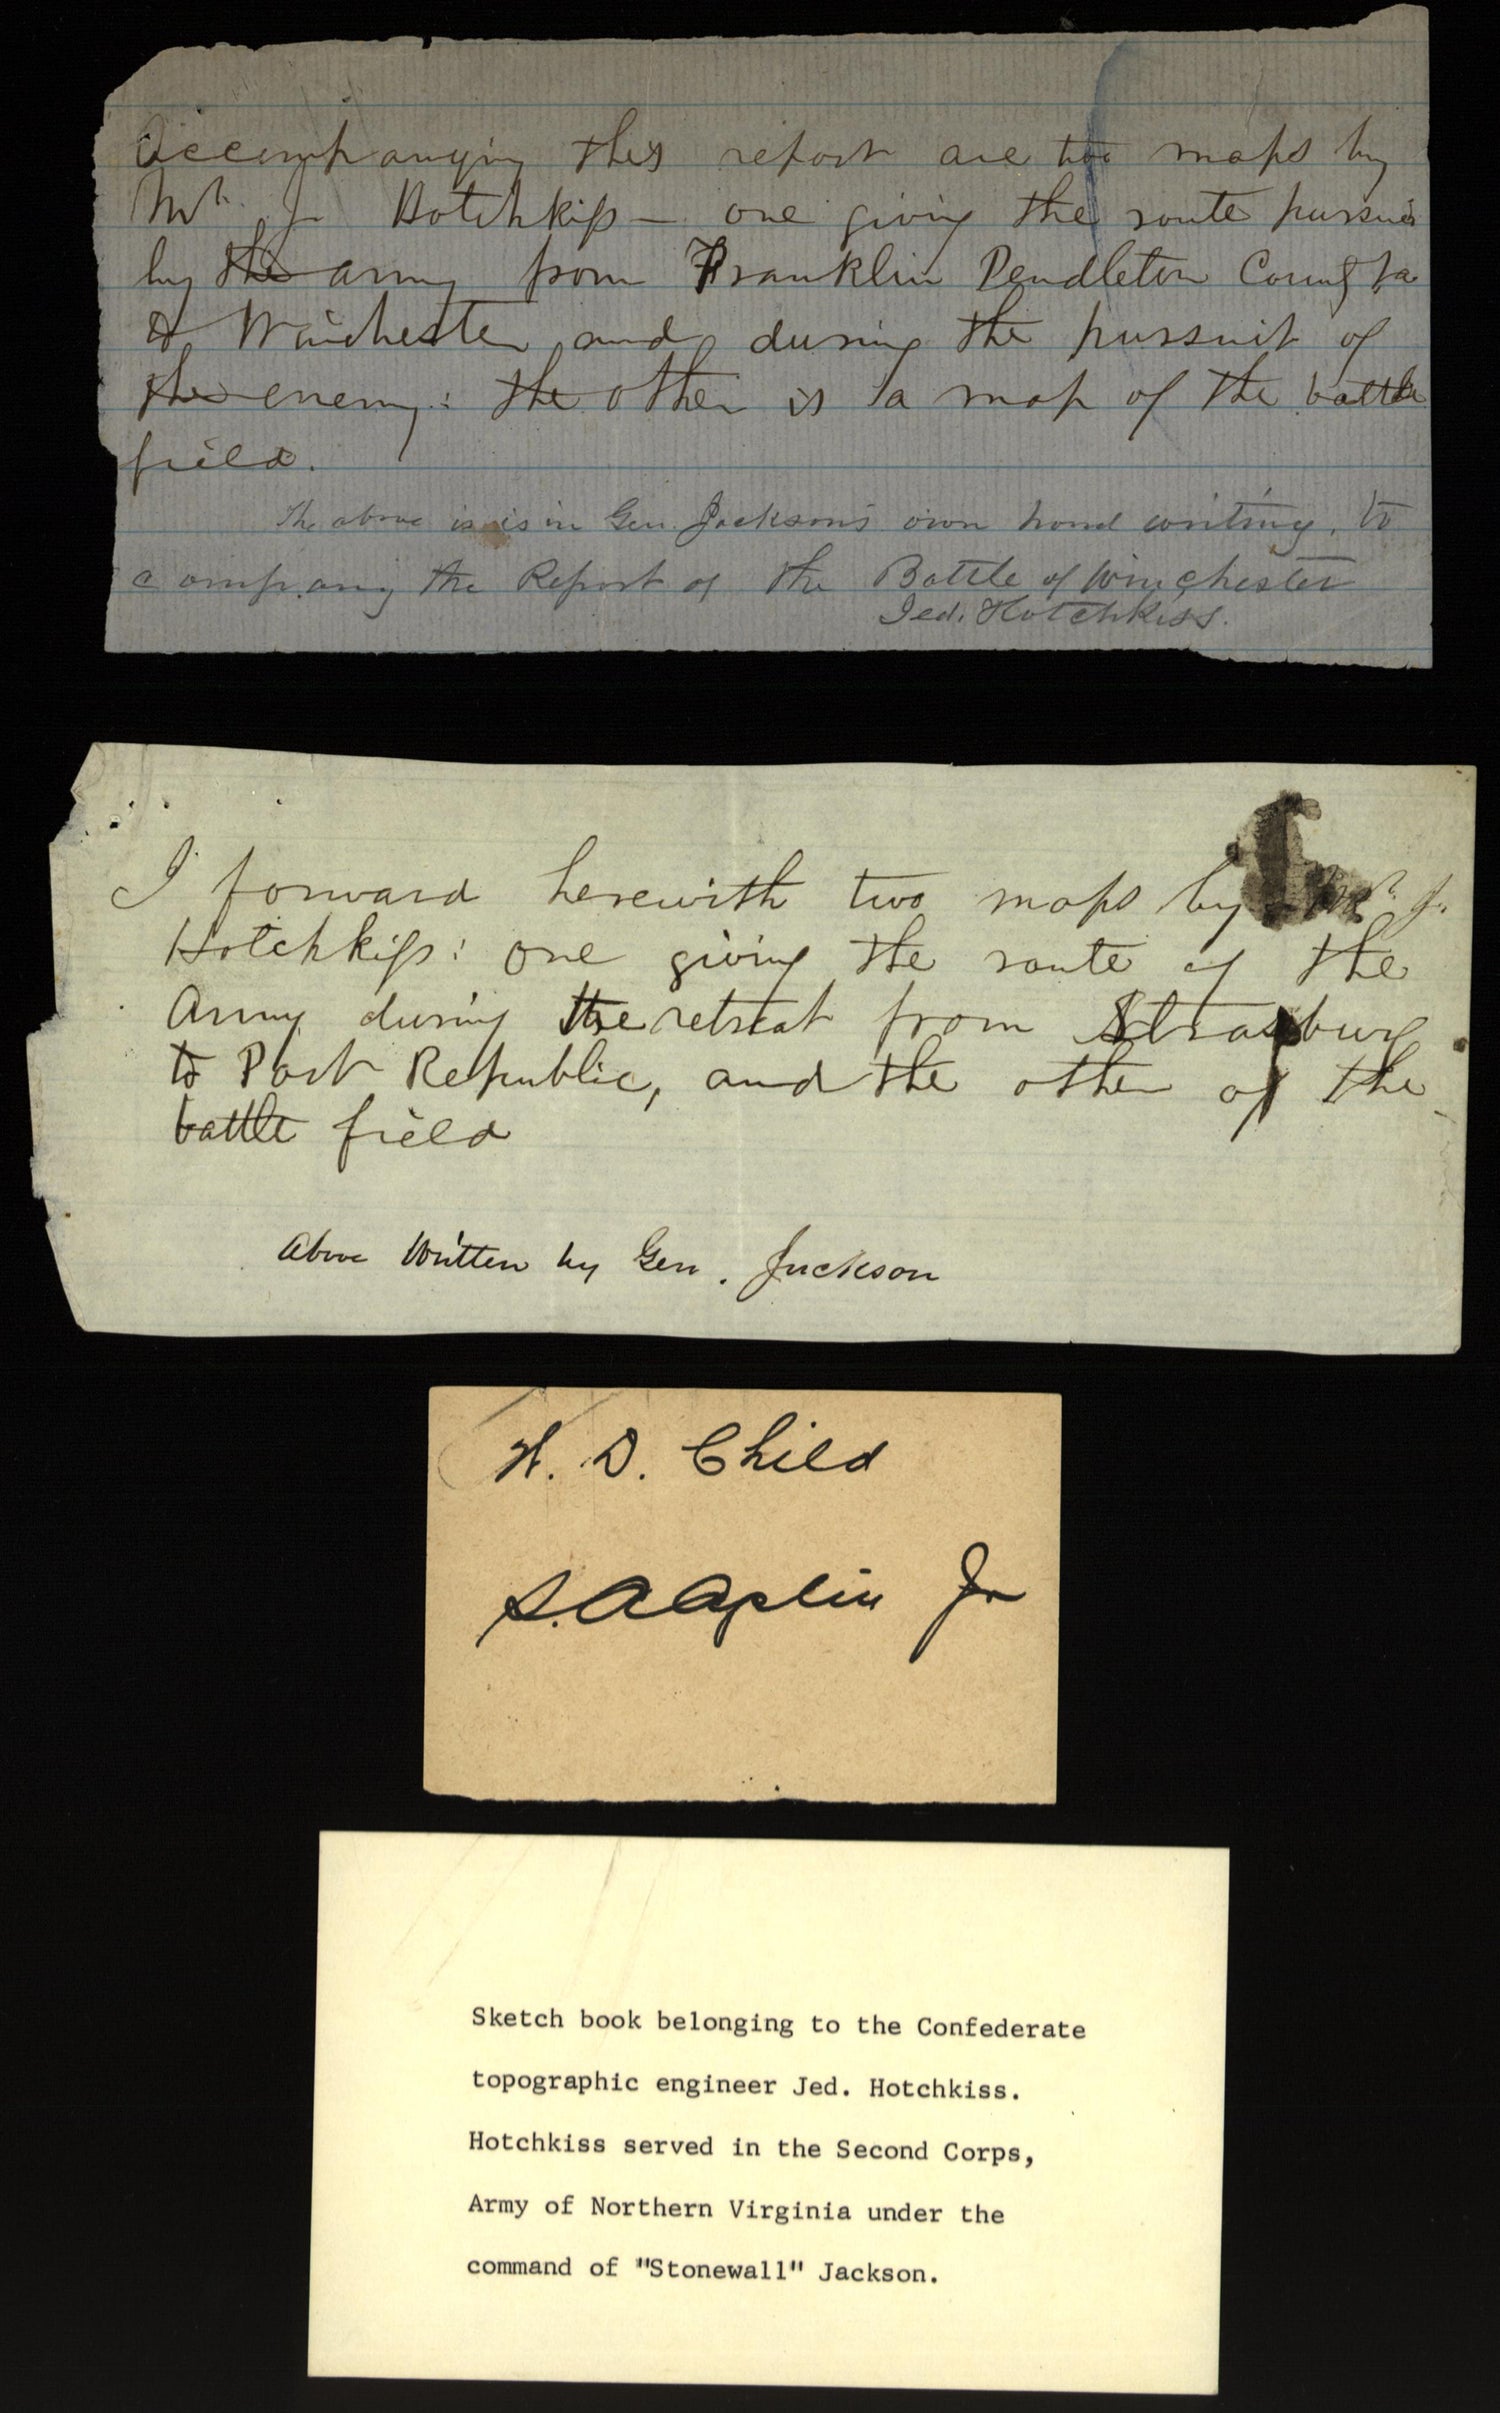 Accompanying this report are two maps by
Mr. J Hotchkiss — one giving the route pursued
by the army from Franklin Pendleton County Va
to Winchester and during the pursuit of
the enemy: the other is a map of the battle
field.
The above is is in Gen. Jackson's own hand writing, to
accompany the Report of the Battle of Winchester
Jed. Hotchkiss.
I forward herewith two maps by Mr. J.
Hotchkiss: one giving the route of the
Army during the retreat from Strasburg
to Port Republic, and the other of the
battle field
Above Written by Gen. Jackson
H. D. Child
S. A Aplin Jr
Sketch book belonging to the Confederate
topographic engineer Jed. Hotchkiss.
Hotchkiss served in the Second Corps,
Army of Northern Virginia under the
command of "Stonewall" Jackson.